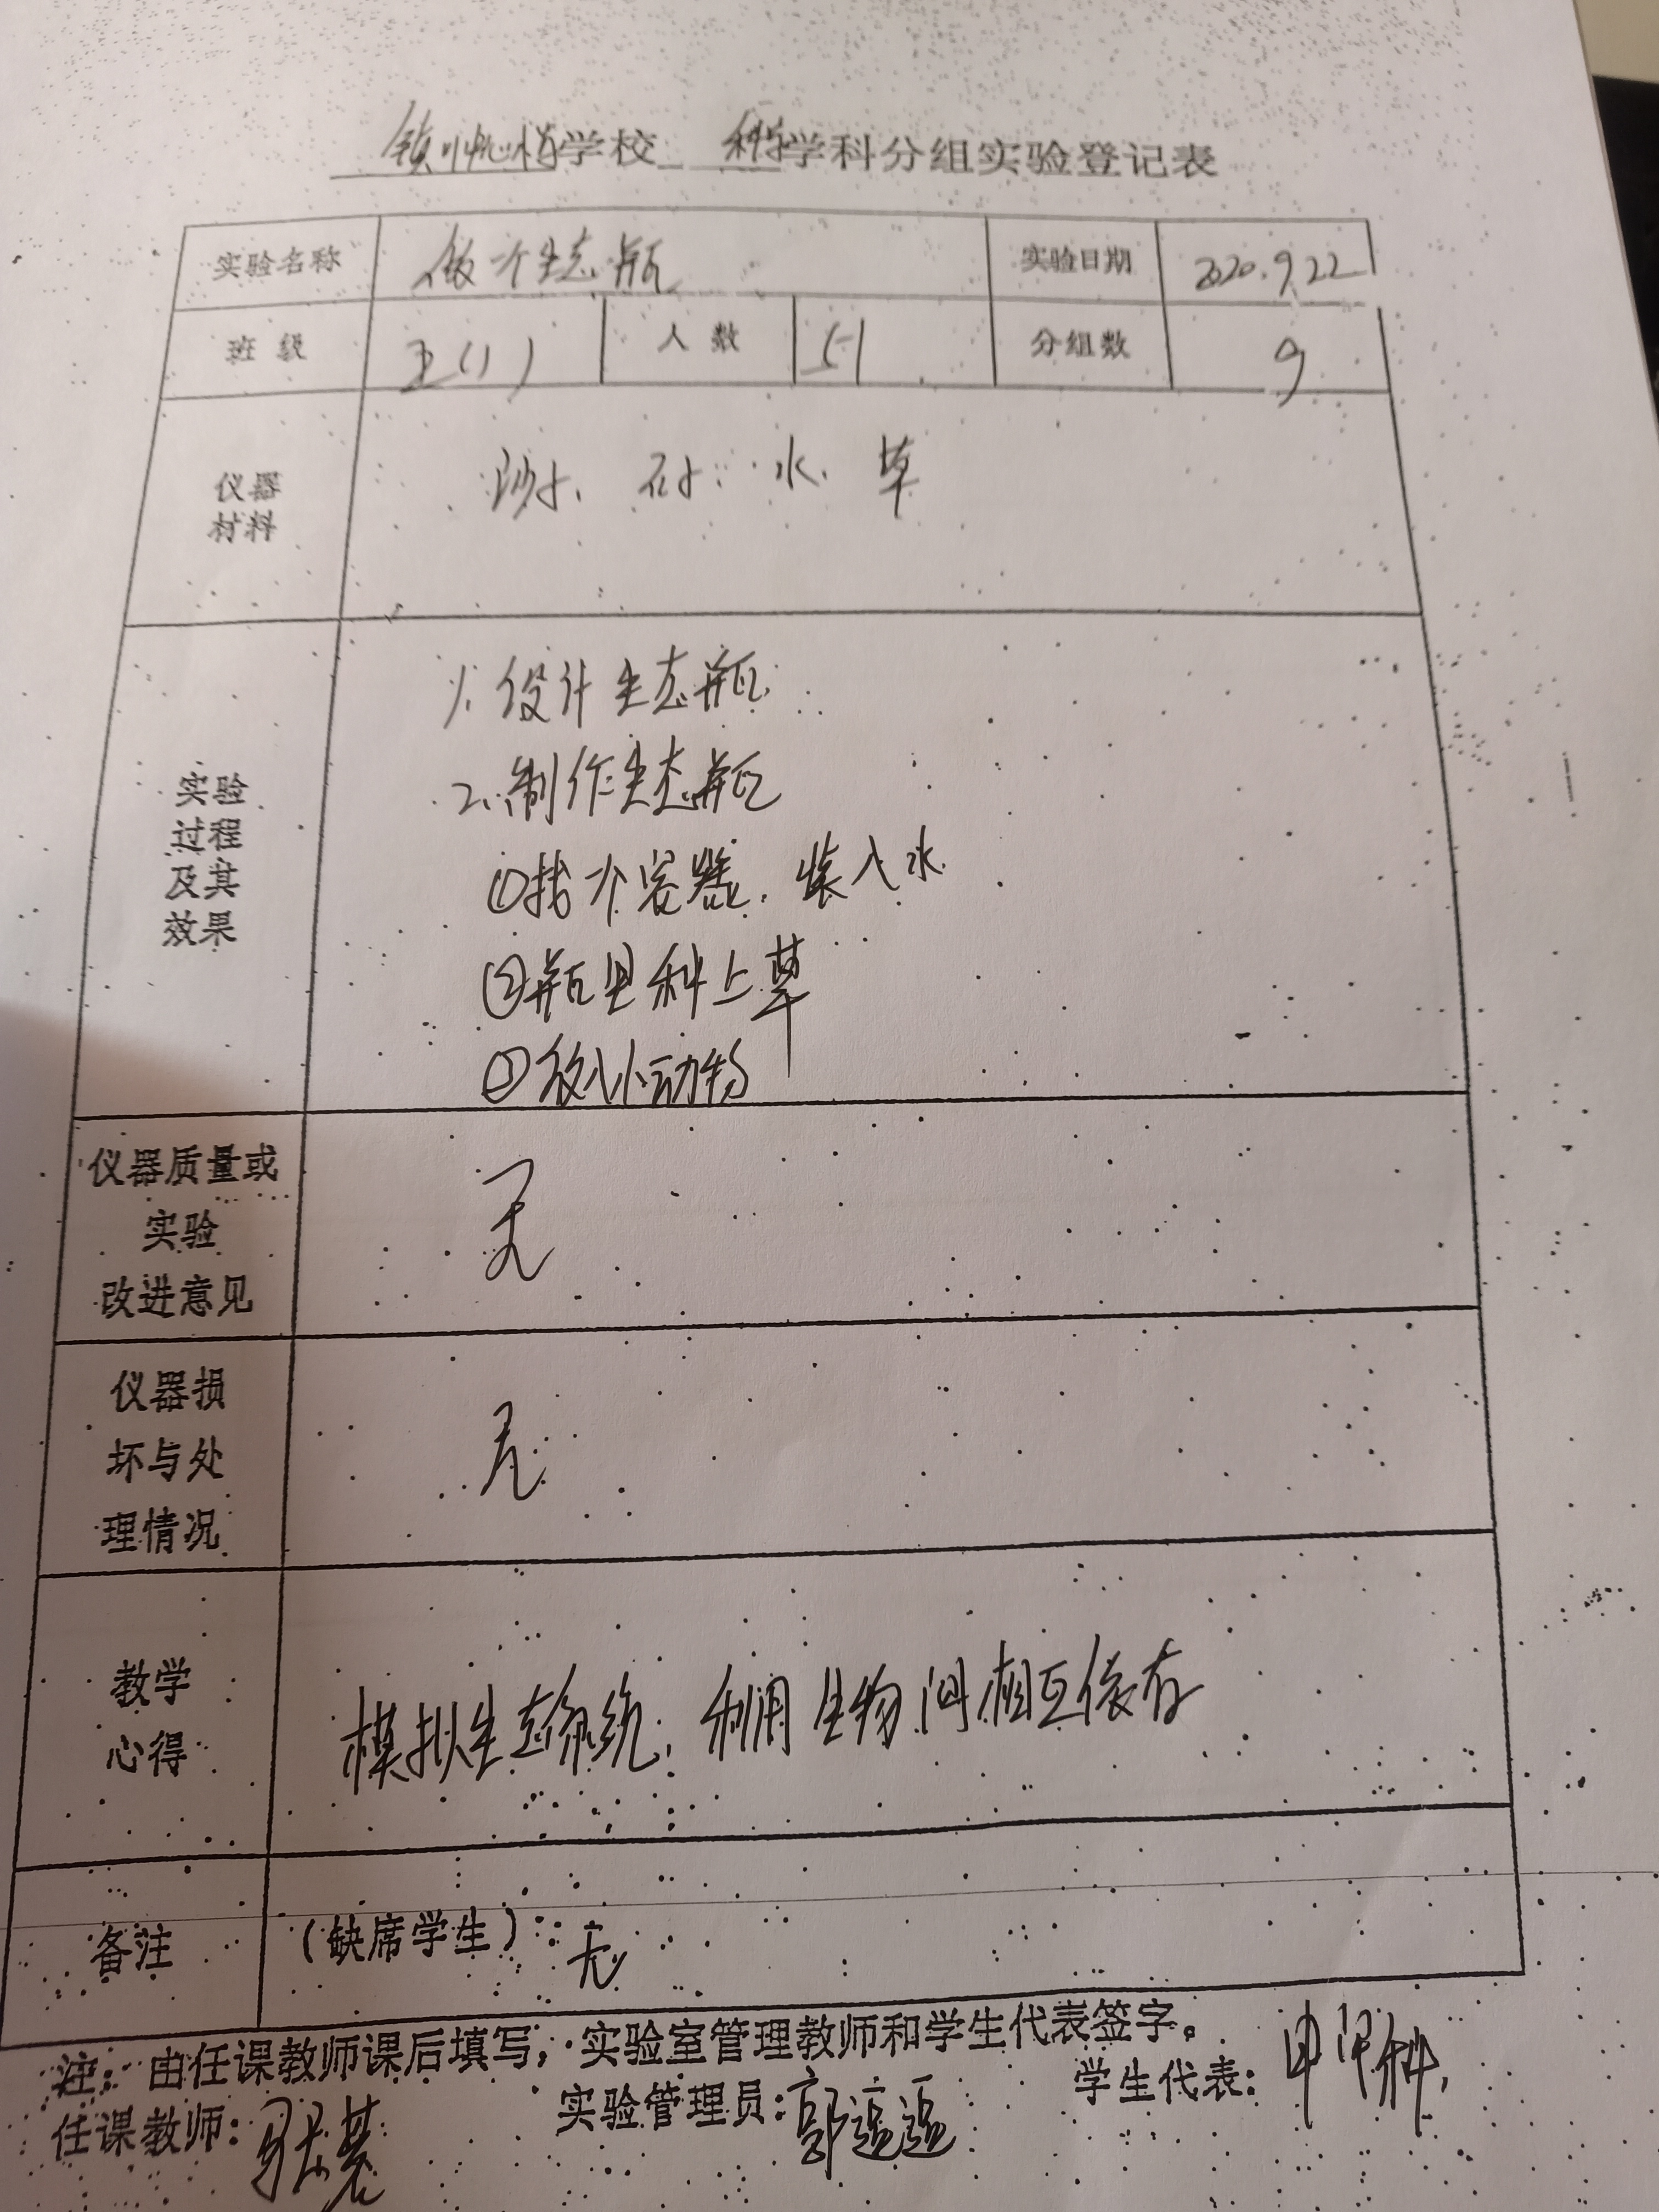 学校 科学学科分组实验登记表
实验名称 做个生态瓶 实验日期 2020.9.22
班级 五(1) 人数 51 分组数 9
仪器
材料
沙子、石子、水、草
实验
过程
及其
效果
1、设计生态瓶
2、制作生态瓶
①找个容器,装入水
②瓶里种上草
③放小动物
仪器质量或
实验
改进意见
无
仪器损
坏与处
理情况
无
教学
心得
模拟生态系统,利用生物间相互依存
备注 (缺席学生):无
注:由任课教师课后填写,实验室管理教师和学生代表签字。
任课教师: 实验管理员:郭遥遥 学生代表: